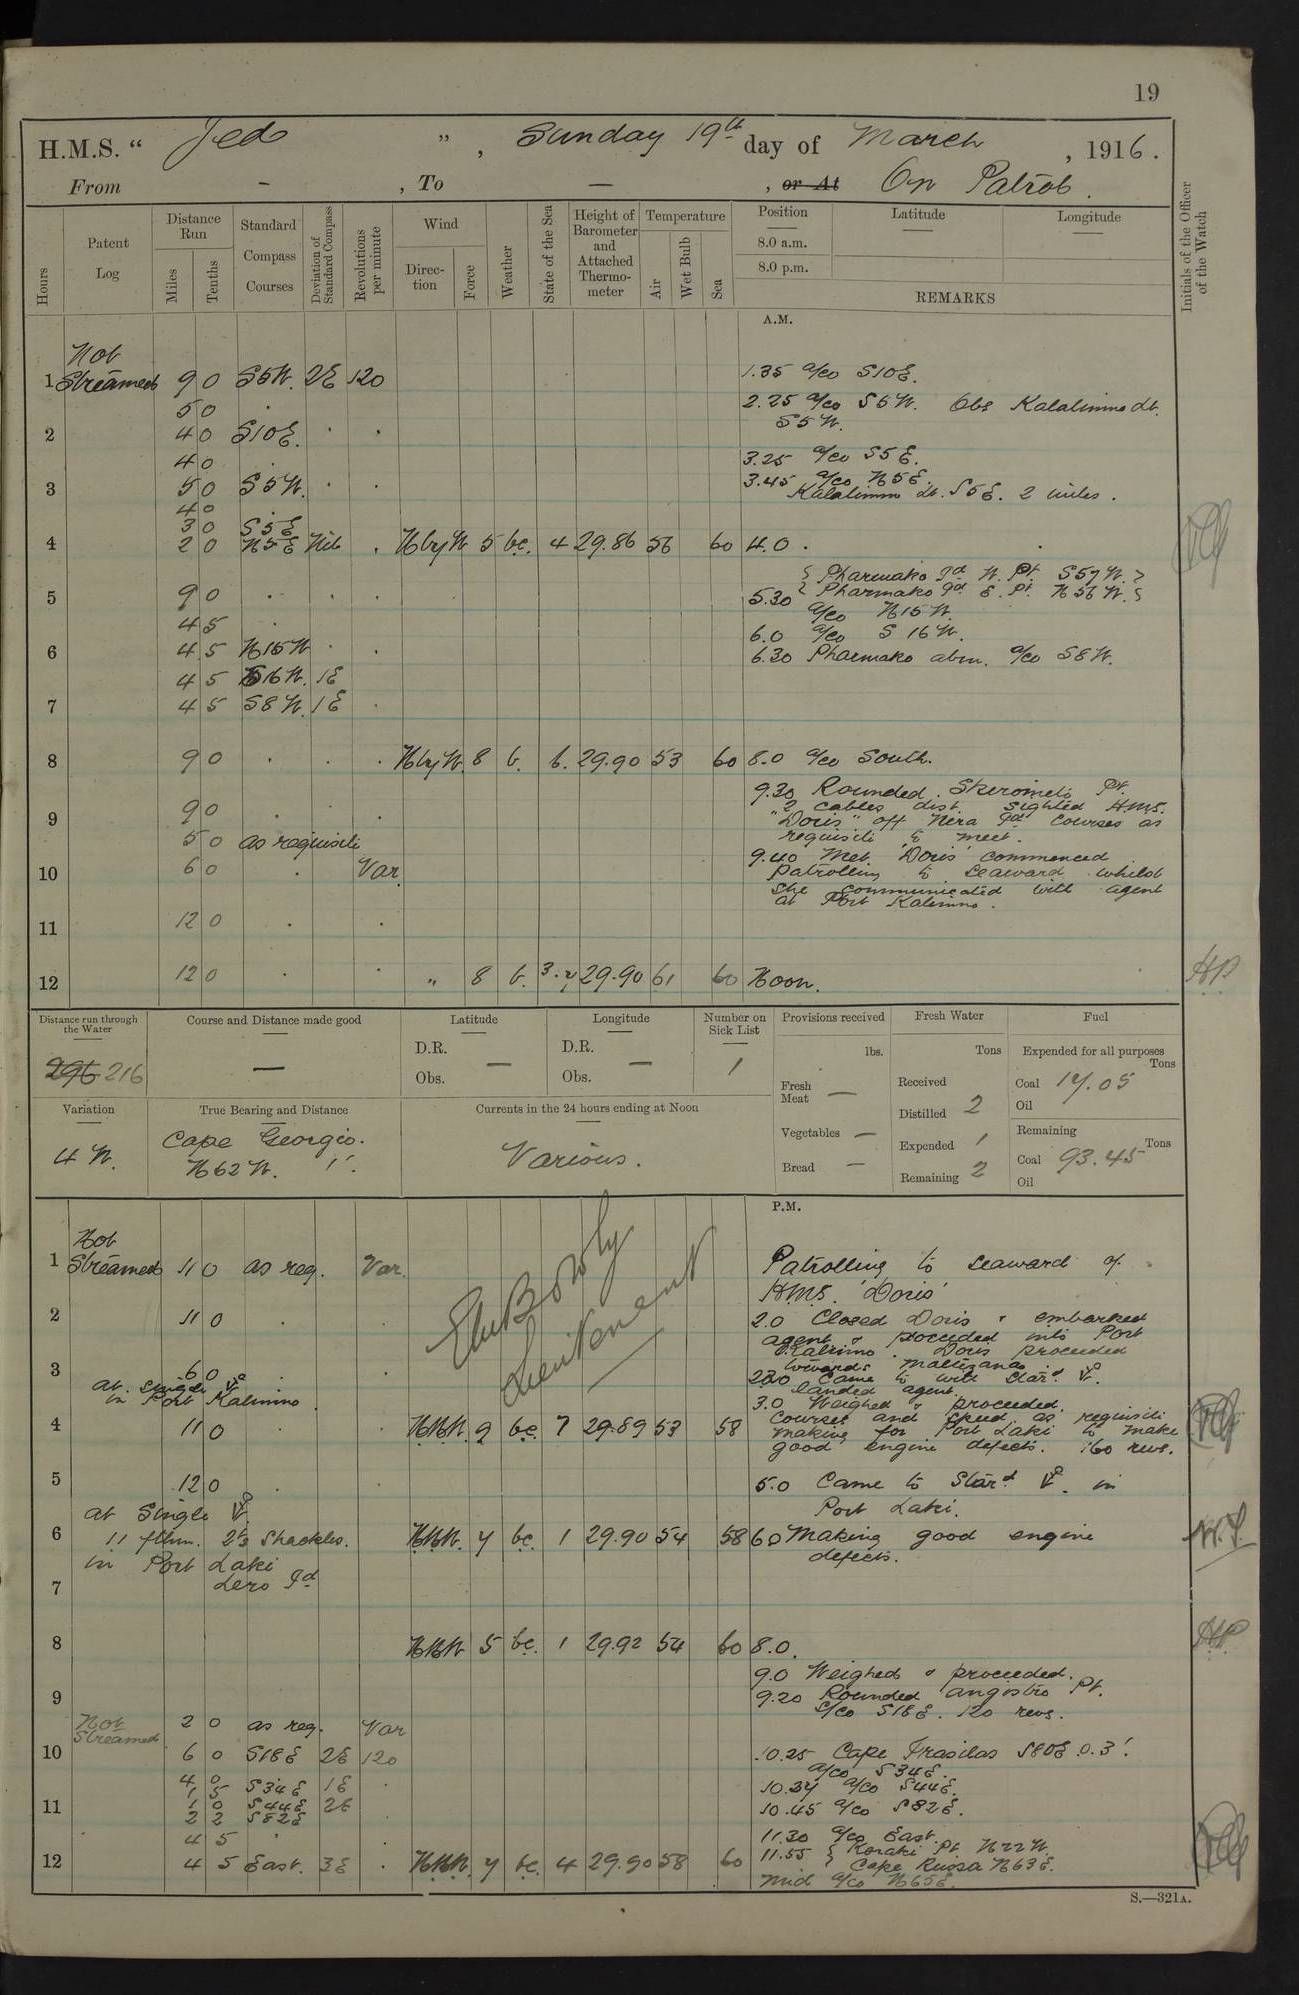 19
H.M.S. “ Jed ” , Sunday 19th day of March , 1916.
From - , To — , or At On Patrol.
Hours
Patent Log
Distance Run
Miles
Tenths
Standard Compass Courses
Deviation of Standard Compass
Revolutions per minute
Wind
Direction
Force
Weather
State of the Sea
Height of Barometer and Attached Thermometer
Temperature
Air
Wet Bulb
Sea
Position
8.0 a.m.
8.0 p.m.
Latitude
Longitude
REMARKS
Initials of the Officer of the Watch
A.M.
Not
1 Streamed 9 0 S5W. 2E 120
1.35 a/co S10E.
5 0 .
2.25 a/co S5W. Obs Kalalimno lt.
S5W.
2 4 0 S10E. . .
4 0 .
3.25 a/co S5E.
3 5 0 S5W. . .
3.45 a/co N5E.
Kalalimno lt. S5E. 2 miles.
4 0
3 0 S5E
4 2 0 N5E Nil . NbyW 5 bc. 4 29.86 56 60 4.0 .
{ Pharmako Id W. Pt. S57W. }
{ Pharmako Id E. Pt. N56W. }
5 9 0 . . .
5.30 a/co N15W.
4 5 .
6.0 a/co S16W.
6 4 5 N15W . .
6.30 Pharmako abm. a/co S8W.
4 5 S16W. 1E
7 4 5 S8W. 1E .
8 9 0 . . . NbyW. 8 b. 6. 29.90 53 60 8.0 a/co South.
9.30 Rounded Pt.
2 cables dist. Sighted H.M.S.
9 9 0 . .
"Doris" off Nera Id Courses as
5 0 as requisite
requisite to meet.
10 6 0 . Var.
9.40 Met 'Doris' commenced
patrolling to seaward whilst
she communicated with agent
at Port Kalimno.
11 12 0 . .
12 12 0 . . " 8 b. 3.4 29.90 61 60 Noon.
Distance run through the Water
296 216
Course and Distance made good
—
Latitude
D.R.
Obs. —
Longitude
D.R.
Obs. —
Number on Sick List
1
Provisions received
lbs.
Fresh Meat —
Vegetables —
Bread —
Fresh Water
Tons
Received
Distilled 2
Expended 1
Remaining 2
Fuel
Expended for all purposes
Tons
Coal 17.05
Oil
Remaining
Tons
Coal 93.45
Oil
Variation
4 W.
True Bearing and Distance
Cape Georgio.
N62W. 1'.
Currents in the 24 hours ending at Noon
Various.
P.M.
Not
1 Streamed 11 0 as req. Var.
Patrolling to seaward of
H.M.S. 'Doris'
Lieutenant
2 11 0 . .
2.0 Closed Doris & embarked
agent & proceeded into Port
Kalimno. Doris proceeded
towards
3 6 0 . .
2.30 Came to with Stard.
landed agent.
at single
in Port Kalimno.
3.0 Weighed & proceeded.
Courses and speed as requisite
4 11 0 . . NNW. 9 bc. 7 29.89 53 58
making for Port Laki to make
good engine defects. 160 revs.
5 12 0 .
5.0 Came to Stard. in
Port Laki.
at Single
6 11 fthm. 2½ Shackles. NNW. 4 bc. 1 29.90 54 58 6.0 Making good engine
defects.
in Port Laki
7 Lero Id
8 NNW 5 bc. 1 29.92 54 60 8.0.
9.0 Weighed & proceeded.
9 9.20 Rounded Angistro Pt.
a/co S18E. 120 revs.
Not Streamed 2 0 as req. Var
10 6 0 S18E 2E 120
10.25 Cape S80E 0.3'.
a/co S34E.
4 0
1 5 S34E 1E .
10.37 a/co S44E.
11 1 0 S44E 2E
10.45 a/co S82E.
2 2 S82E
4 5 .
11.30 a/co East.
11.55 { Koraki Pt. N22W.
{ Cape Russa N63E.
12 4 5 East. 3E . NNW. 4 bc. 4 29.90 58 60
Mid a/co N65E.
S.—321A.